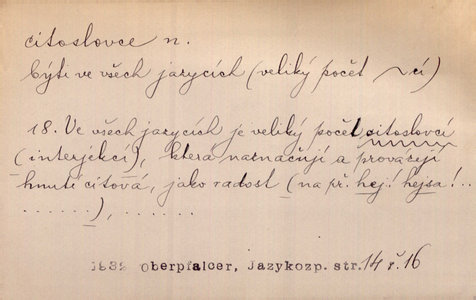 citoslovce n.
býti ve všech jazycích (veliký počet ~cí)
18. Ve všech jazycích je veliký počet citoslovcí
(interjekcí), která naznačují a provázejí
hnutí citová, jako radost (na př. hej! hejsa!..
......), ......
1932 Oberpfalcer, Jazykozp. str. 14 ř. 16